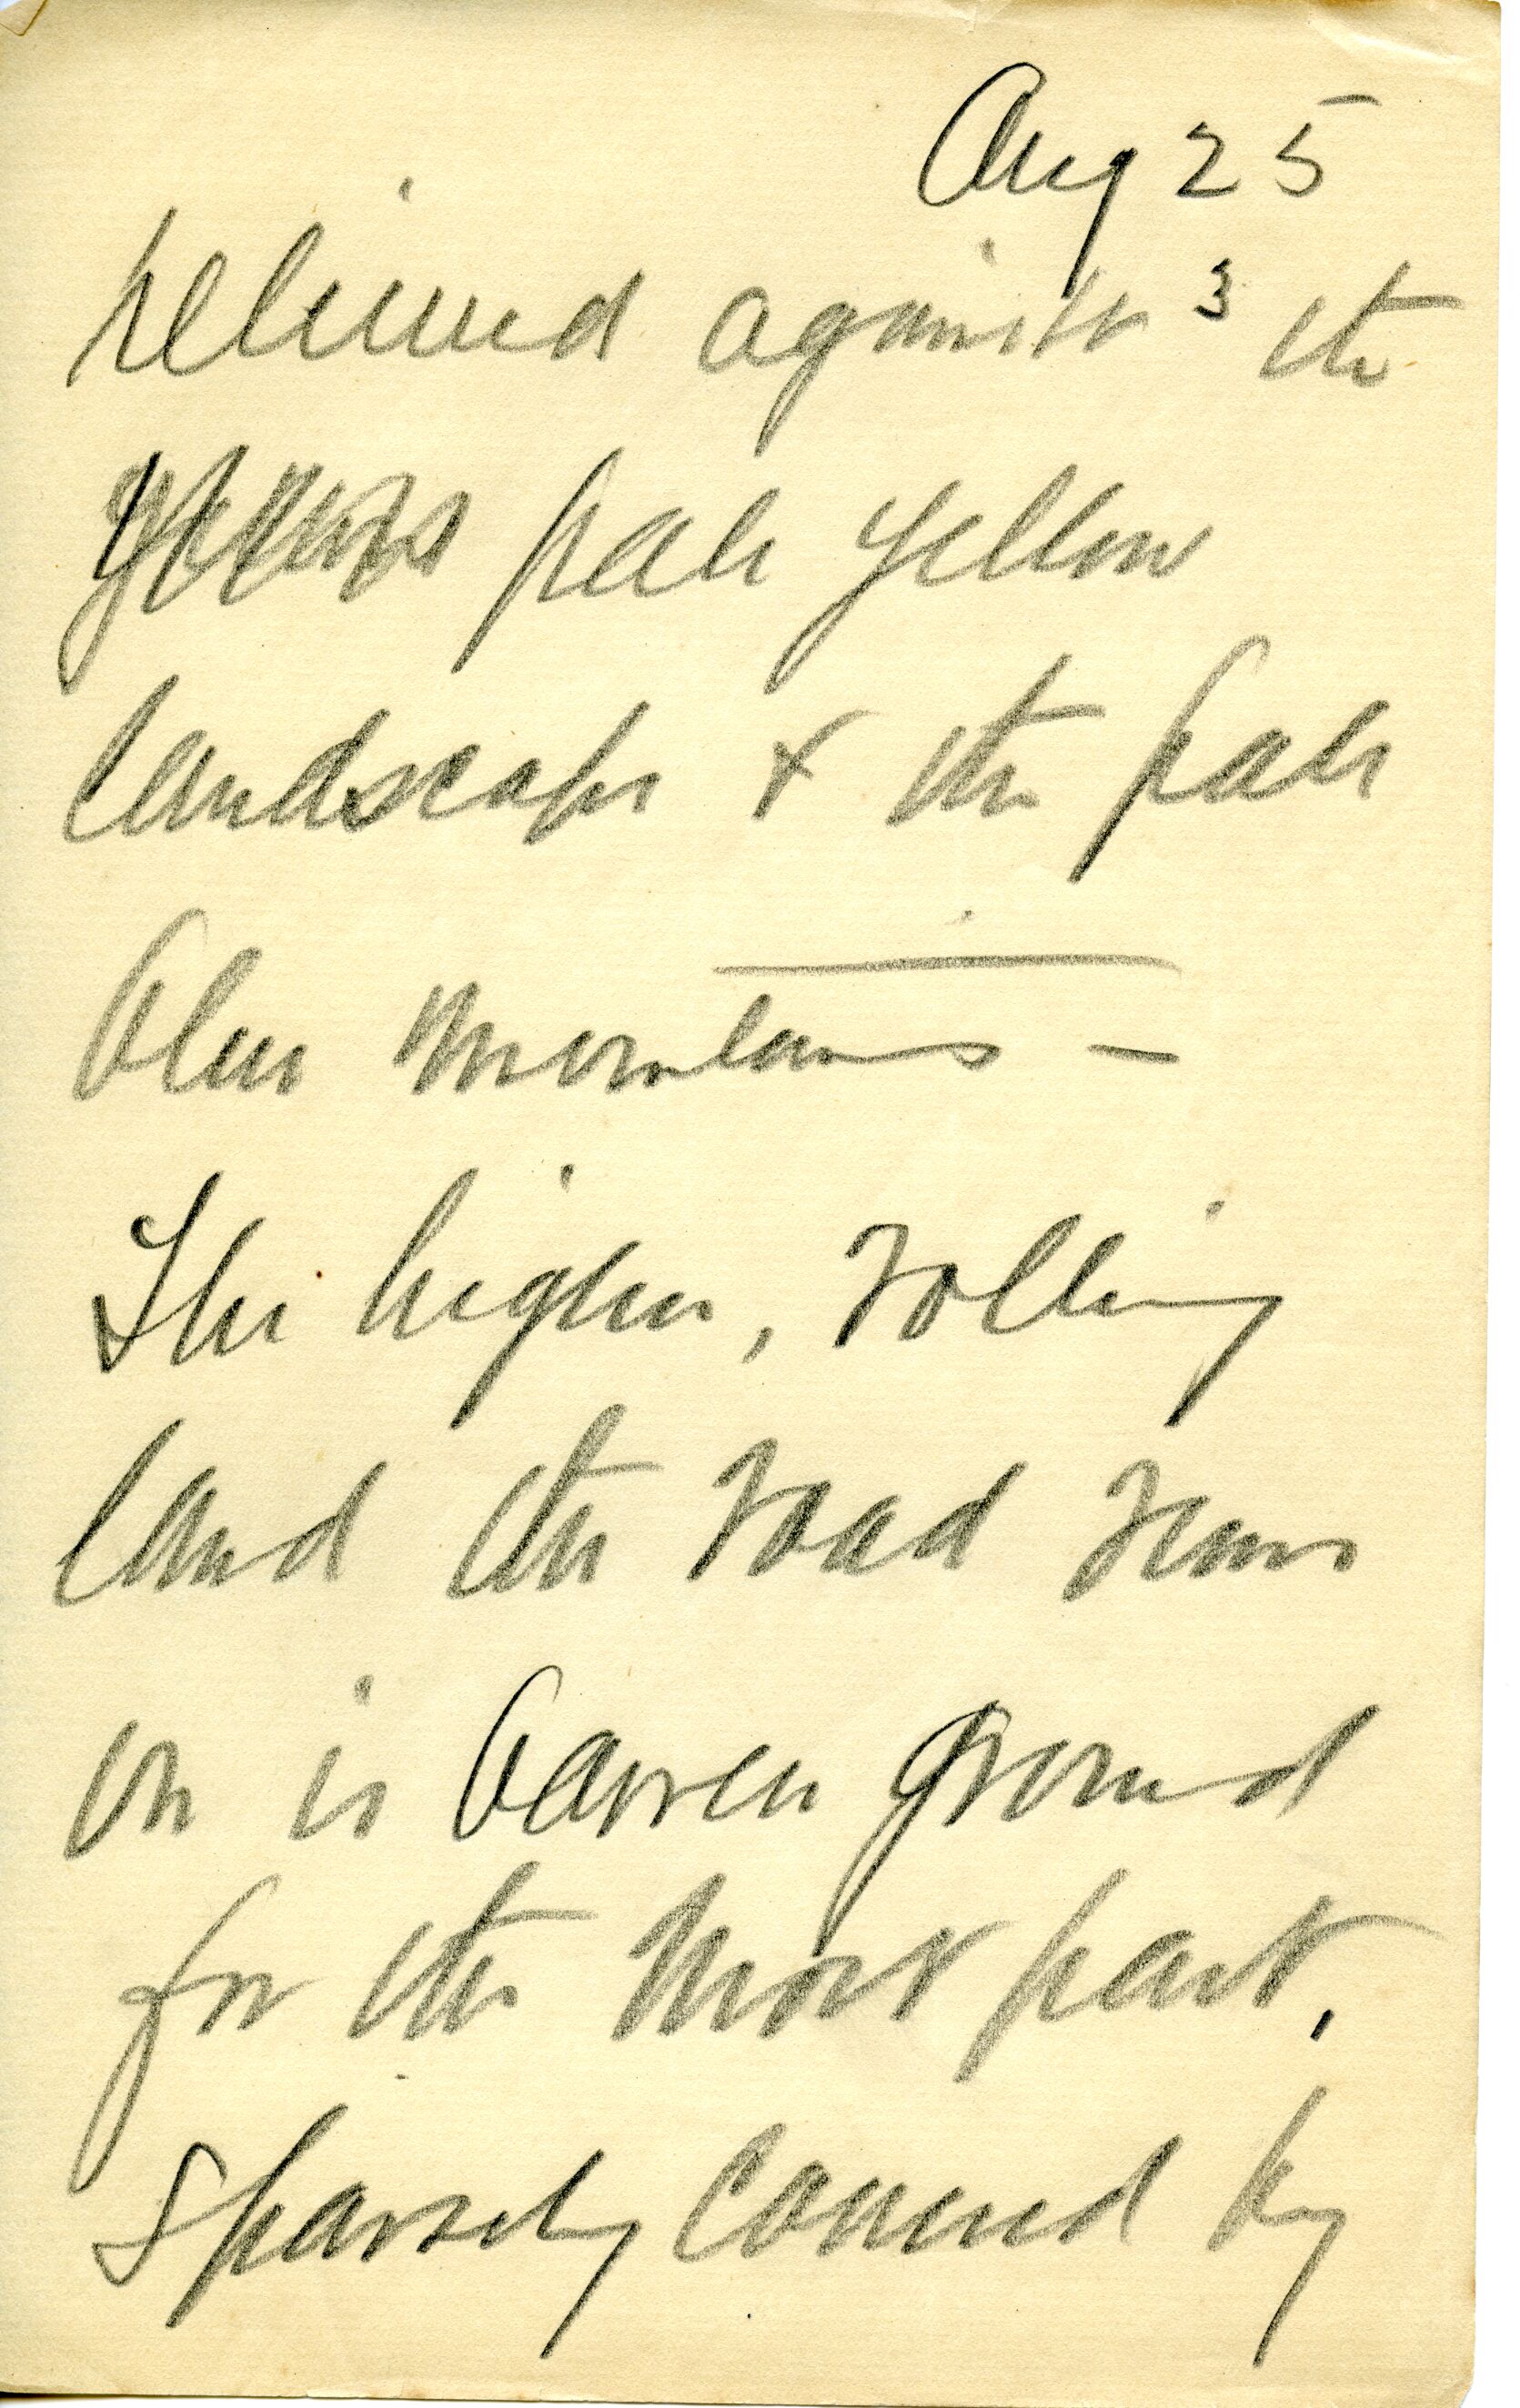 Aug 25
3
relieved against the
pale yellow
landscape & the pale
blue mountains –
The higher, rolling
land the road runs
on is barren ground
for the most part,
sparsely covered by